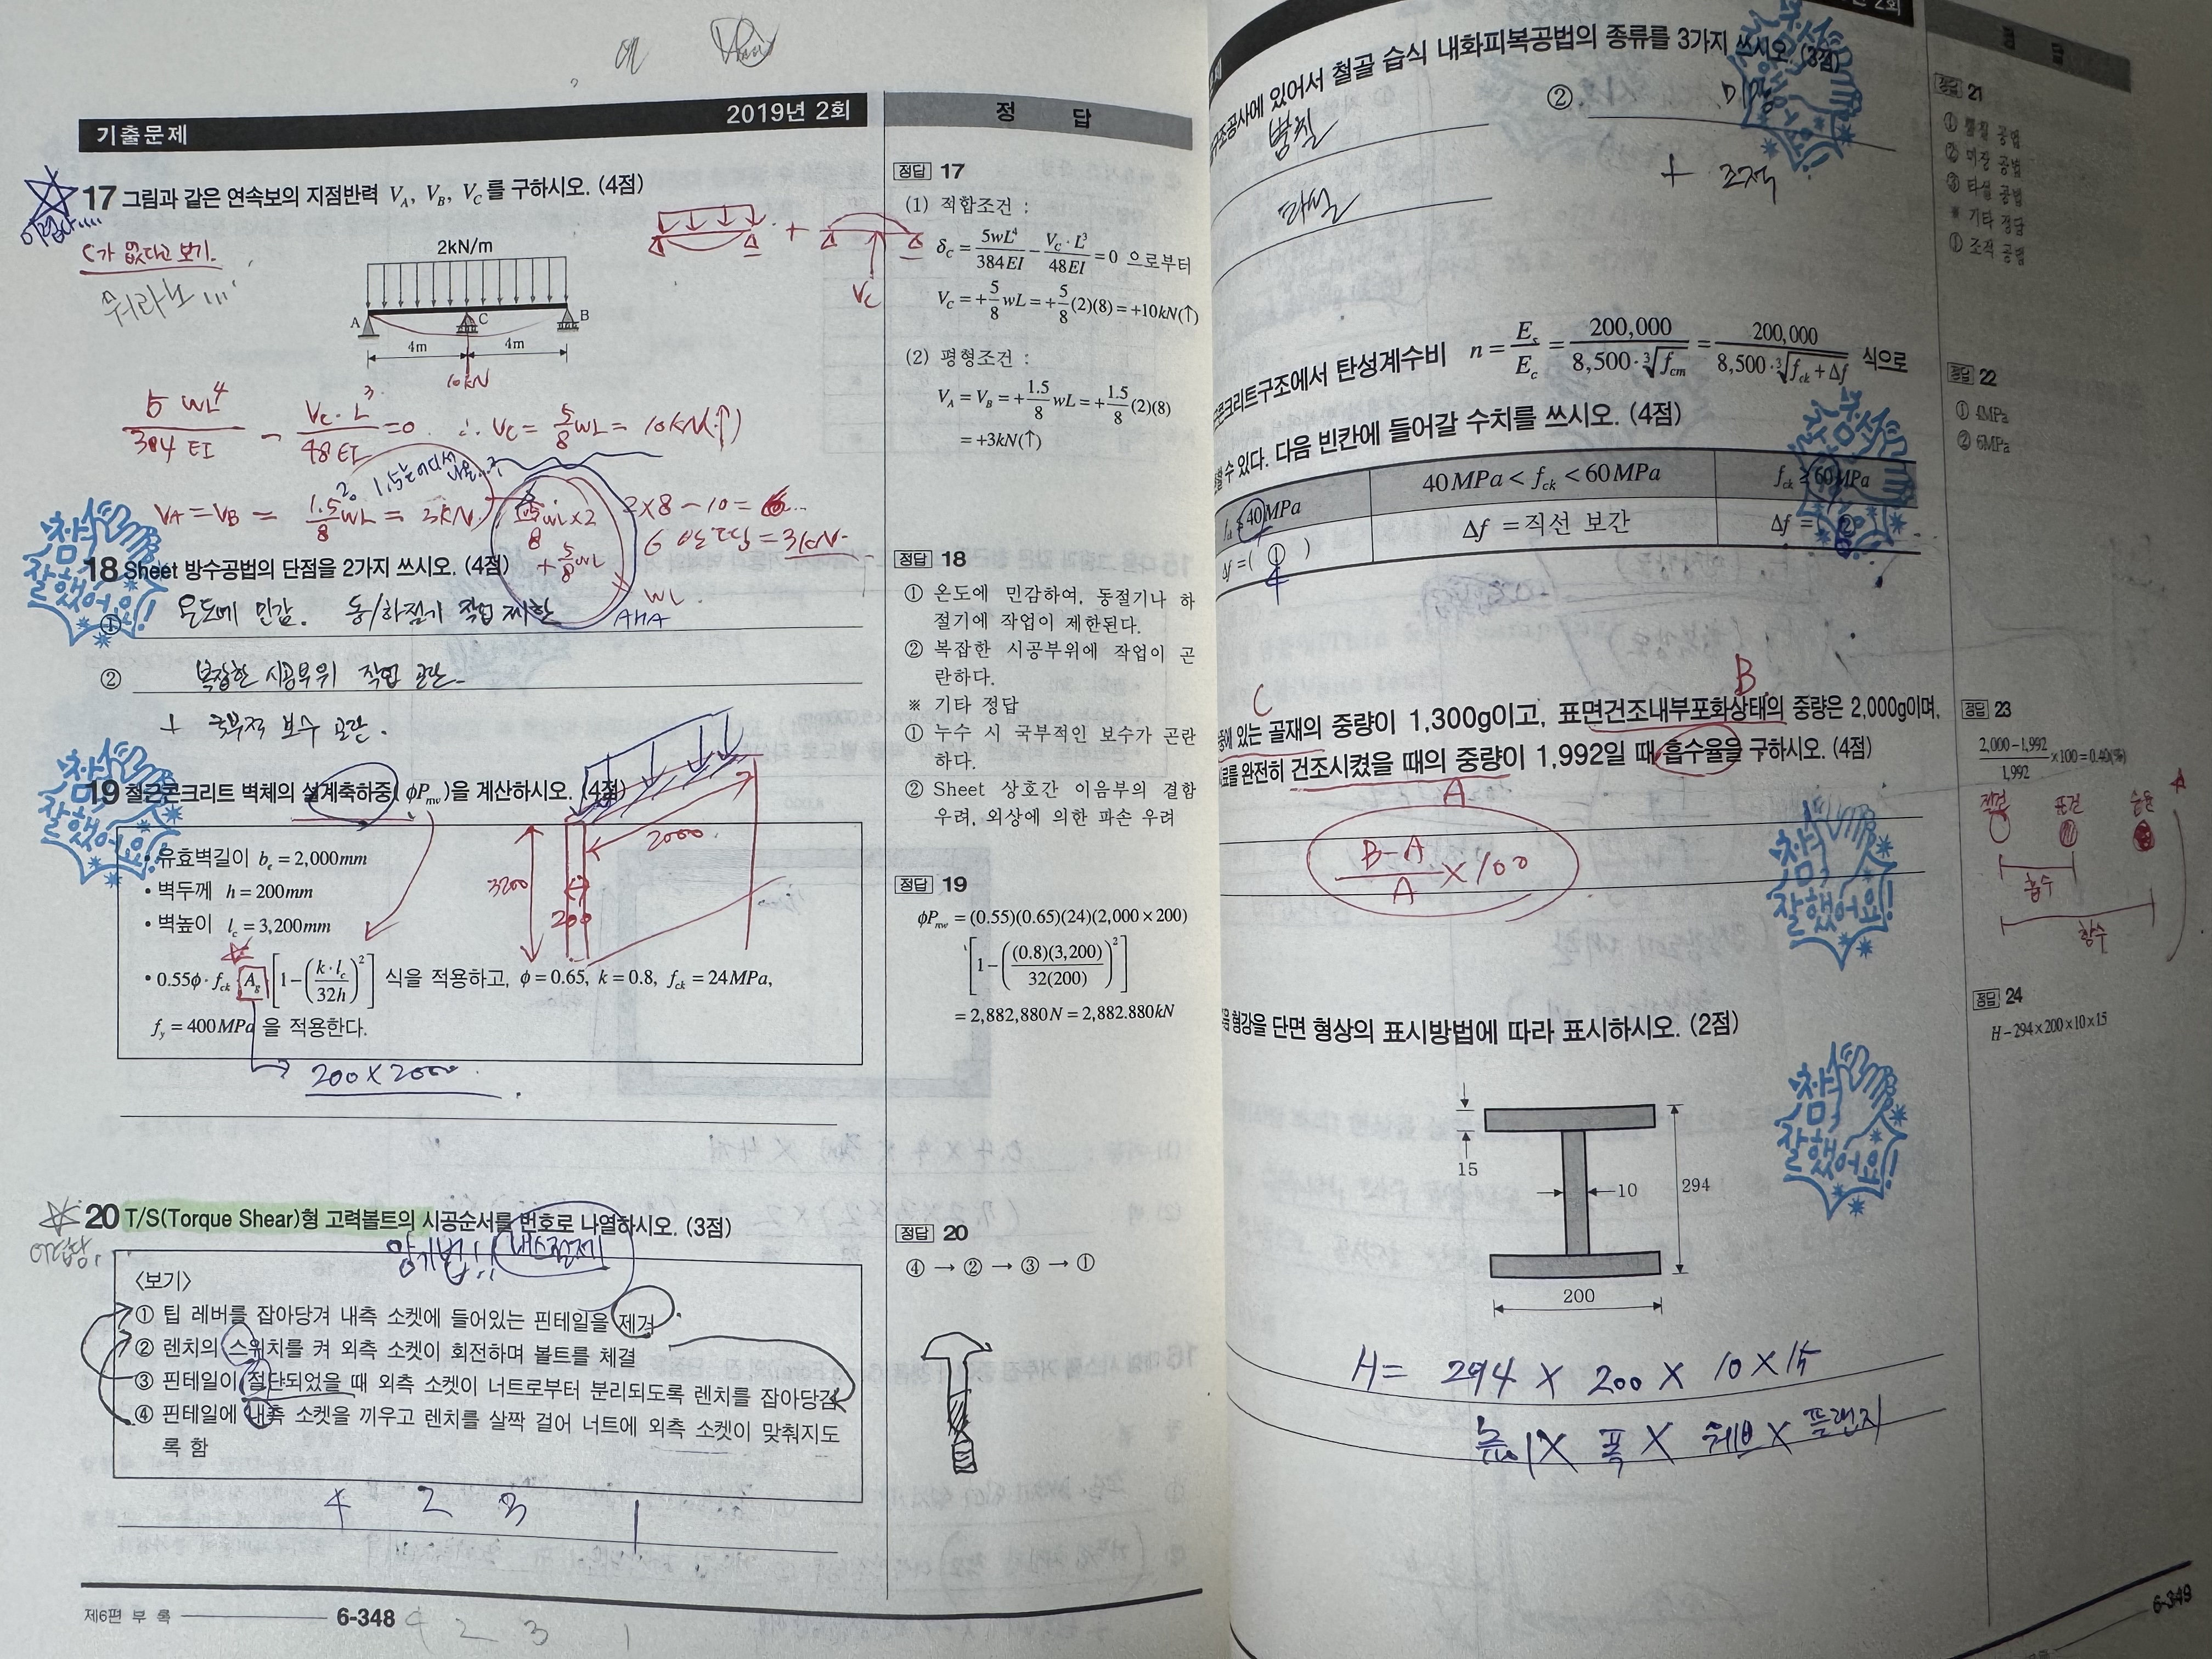 기출문제
2019년 2회
17 그림과 같은 연속보의 지점반력 V_A, V_B, V_C를 구하시오. (4점)
C가 없다고 보기.
2kN/m
A
C
B
4m
4m
10kN
V_C
5wL⁴/384EI - V_C·L³/48EI = 0 ∴ V_C = 5/8 wL = 10kN(↑)
V_A = V_B = 1.5/8 wL = 3kN
1.5/8 wL × 2
+ 5/8 wL
wL
AHA
2×8-10=6
6 반띵 = 3kN
18 Sheet 방수공법의 단점을 2가지 쓰시오. (4점)
① 온도에 민감. 동/하절기 작업 제한
② 복잡한 시공부위 작업 곤란
+ 국부적 보수 곤란.
참 잘했어요!
19 철근콘크리트 벽체의 설계축하중(φP_nw)을 계산하시오. (4점)
• 유효벽길이 b_e = 2,000mm
• 벽두께 h = 200mm
• 벽높이 l_c = 3,200mm
• 0.55φ·f_ck·A_g[1-(k·l_c/32h)²] 식을 적용하고, φ=0.65, k=0.8, f_ck=24MPa,
f_y = 400MPa을 적용한다.
3200
2000
200
200×2000
참 잘했어요!
20 T/S(Torque Shear)형 고력볼트의 시공순서를 번호로 나열하시오. (3점)
암기법!! 내스절제
<보기>
① 팁 레버를 잡아당겨 내측 소켓에 들어있는 핀테일을 제거
② 렌치의 스위치를 켜 외측 소켓이 회전하며 볼트를 체결
③ 핀테일이 절단되었을 때 외측 소켓이 너트로부터 분리되도록 렌치를 잡아당김
④ 핀테일에 내측 소켓을 끼우고 렌치를 살짝 걸어 너트에 외측 소켓이 맞춰지도
록 함
4 2 3 1
제6편 부 록 6-348
4 2 3 1
정 답
정답 17
(1) 적합조건 :
δ_C = 5wL⁴/384EI - V_C·L³/48EI = 0 으로부터
V_C = +5/8 wL = +5/8 (2)(8) = +10kN(↑)
(2) 평형조건 :
V_A = V_B = +1.5/8 wL = +1.5/8 (2)(8)
= +3kN(↑)
정답 18
① 온도에 민감하여, 동절기나 하
절기에 작업이 제한된다.
② 복잡한 시공부위에 작업이 곤
란하다.
※ 기타 정답
① 누수 시 국부적인 보수가 곤란
하다.
② Sheet 상호간 이음부의 결함
우려, 외상에 의한 파손 우려
정답 19
φP_nw = (0.55)(0.65)(24)(2,000×200)
[1-((0.8)(3,200)/32(200))²]
= 2,882,880N = 2,882.880kN
정답 20
④ → ② → ③ → ①
2회
구조공사에 있어서 철골 습식 내화피복공법의 종류를 3가지 쓰시오. (3점)
뿜칠
② 미장
타설
+ 조적
참 잘했어요!
콘크리트구조에서 탄성계수비 n = E_s/E_c = 200,000/(8,500·∛f_cm) = 200,000/(8,500·∛(f_ck+Δf)) 식으로
수 있다. 다음 빈칸에 들어갈 수치를 쓰시오. (4점)
f_ck ≤ 40MPa
40MPa < f_ck < 60MPa
f_ck ≥ 60MPa
Δf = ( ① )
Δf = 직선 보간
Δf = ②
4
참 잘했어요!
C
B
있는 골재의 중량이 1,300g이고, 표면건조내부포화상태의 중량은 2,000g이며,
완전히 건조시켰을 때의 중량이 1,992일 때 흡수율을 구하시오. (4점)
A
B-A/A × 100
참 잘했어요!
형강을 단면 형상의 표시방법에 따라 표시하시오. (2점)
15
10
294
200
H = 294 × 200 × 10 × 15
높이 × 폭 × 웨브 × 플랜지
참 잘했어요!
정 답
정답 21
① 뿜칠 공법
② 미장 공법
③ 타설 공법
※ 기타 정답
① 조적 공법
정답 22
① 4MPa
② 6MPa
정답 23
2,000-1,992/1,992 × 100 = 0.40(%)
절건
표건
습윤
흡수
함수
정답 24
H-294×200×10×15
6-349